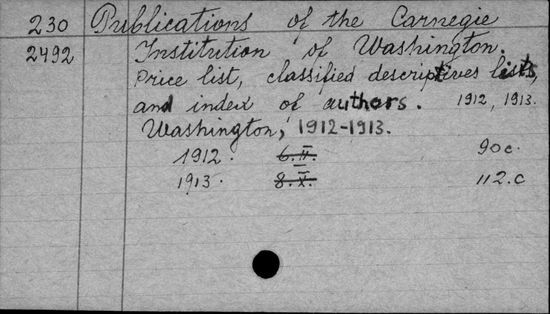 230 Publications of the Carnegie
2492 Institution of Washington.
Price list, classified descriptives lists,
and index of authors. 1912, 1913.
Washington, 1912-1913.
1912. 6. II. 90 c.
1913. 8. X. 112. c